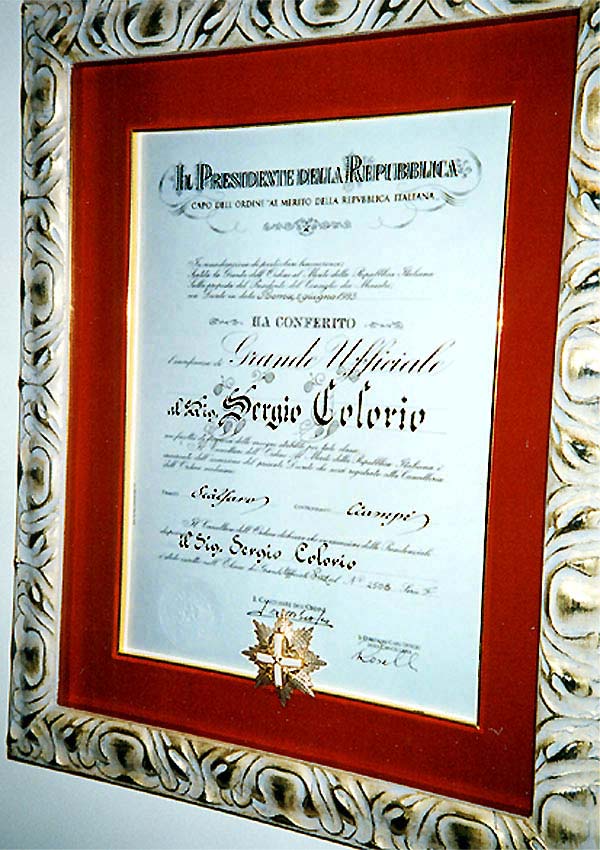 IL PRESIDENTE DELLA REPUBBLICA
CAPO DELL'ORDINE "AL MERITO DELLA REPVBBLICA ITALIANA"
In considerazione di particolari benemerenze
Sentita la Giunta dell'Ordine al Merito della Repubblica Italiana
Sulla proposta del Presidente del Consiglio dei Ministri
con Decreto in data Roma, 2 giugno 1993
HA CONFERITO
l'onorificenza di Grande Ufficiale
al Sig. Sergio Colorio
con facoltà di fregiarsi delle insegne stabilite per tale classe
Il Cancelliere dell'Ordine Al Merito della Repubblica Italiana è
incaricato dell'esecuzione del presente Decreto che sarà registrato alla Cancelleria
dell'Ordine medesimo
Scalfaro Ciampi
Il Cancelliere dell'Ordine dichiara che in esecuzione delle Presidenziali
disposizioni
il Sig. Sergio Colorio
è stato iscritto nell'Elenco dei Grandi Ufficiali N.° 2508 Serie
IL CANCELLIERE DELL'ORDINE